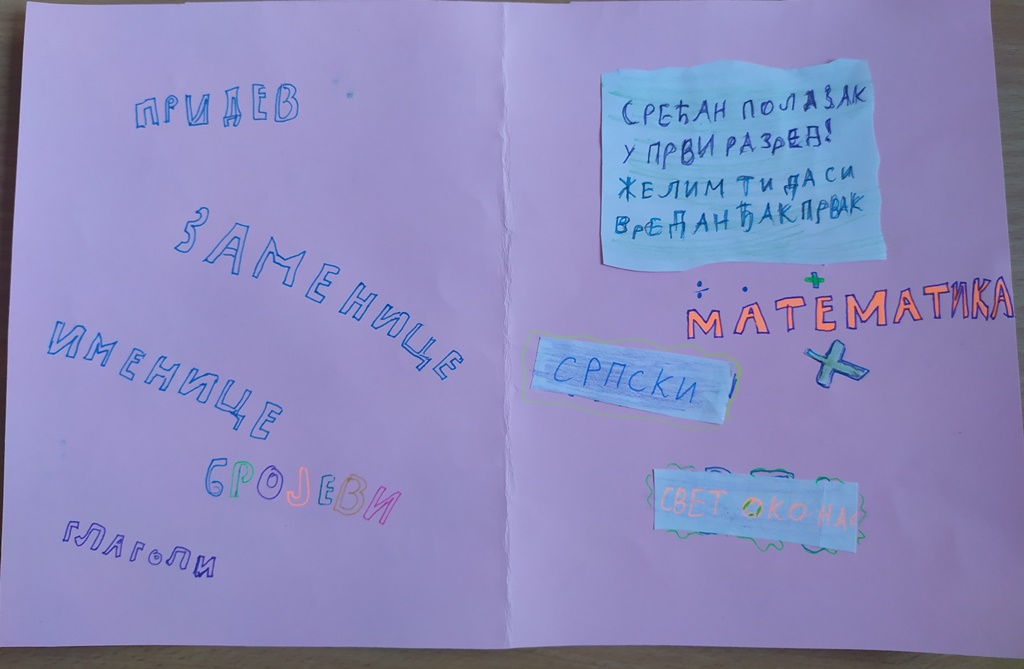 ПРИДЕВ
ЗАМЕНИЦЕ
ИМЕНИЦЕ
БРОЈЕВИ
ГЛАГОЛИ
СРЕЋАН ПОЛАЗАК
У ПРВИ РАЗРЕД!
ЖЕЛИМ ТИ ДА СИ
ВРЕДАН ЂАК ПРВАК
÷ · +
МАТЕМАТИКА
×
СРПСКИ
СВЕТ ОКО НАС